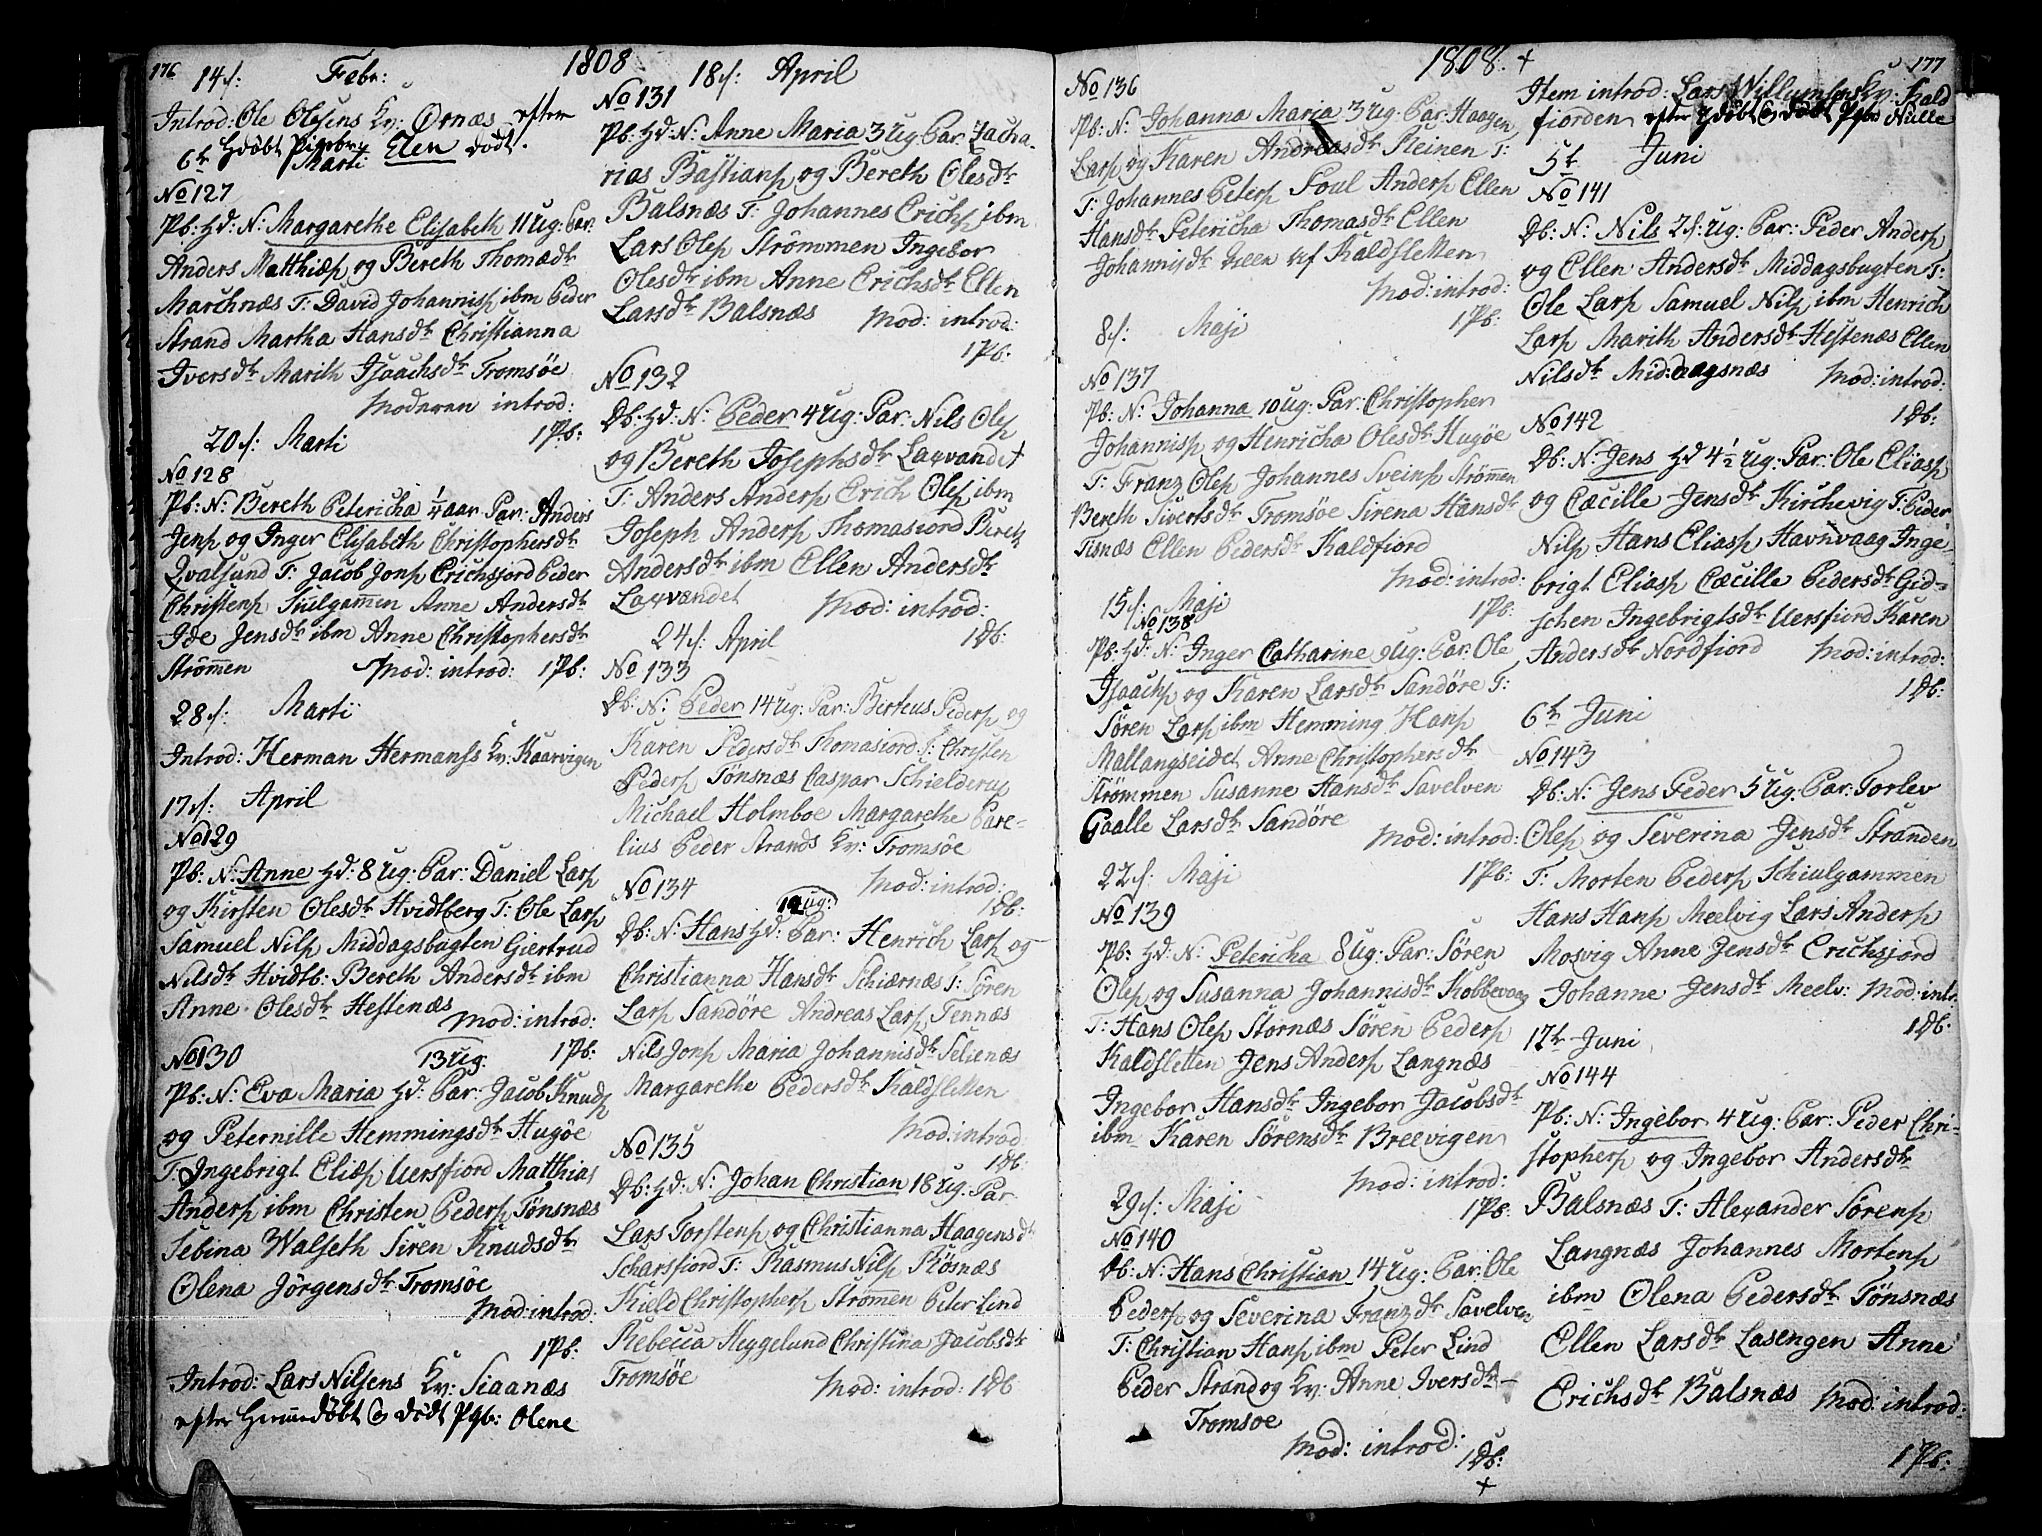 176
1808
14 s: Febr:
Introd: Ole Olesens Kv: Ornæs efter
hdøbt Pigebr: Elen dødt.
6te Marti
No 127
Pb: Hd: N: Margarethe Elisabeth 11 Ug: Par:
Anders Matthiæs og Bereth Thomædtr
Marchnæs T: David Johannis ibm Peder
Strand Martha Hansdtr Christianna
Iversdtr Marith Isaachsdtr Tromsøe
Moderen introd:
1 Pb:
20 s: Marti
No 128
Pb: N: Bereth Petericha 1/4 aar Par: Anders
Jens og Inger Elisabeth Christophersdtr
Qvalsund T: Jacob Jons Erichsjord Peder
Christens Andersdtr Anne
Ide Jensdtr ibm Anne Christophersdtr
Strømen Mod: introd: 1 Pb:
28 s: Marti
Introd: Herman Hermanss Kv: Kaarvigen
17 s: April
No 129
Pb: N: Anne Hd: 8 Ug: Par: Daniel Lars
og Kirsten Olesdtr Hvidtberg T: Ole Lars
Samuel Nils Middagsbugten Giertrud
Nilsdtr Hvidtb: Bereth Andersdtr ibm
Anne Olesdtr Hestenæs
Mod: introd:
1 Pb:
No 130 13 Ug:
Pb: N: Eva Maria Hd: Par: Jacob Knuds
og Peternille Hemmingsdtr Hugøe
T: Ingebrigt Elies Uersfiord Matthias
Anders ibm Christen Peders Tønsnæs
Sebina Walseth Siren Knudsdtr
Olena Jørgensdtr Tromsøe
Mod: introd:
1 Pb:
Introd: Lars Nilsens Kv: Siaanæs
efter Hiemedøbt og dødt Pgb: Olene
18 s: April
No 131
Pb: Hd: N: Anne Maria 3 Ug: Par: Zacha-
rias Bastians og Bereth Olesdtr
Balsnæs T: Johannes Erichs ibm
Lars Oles Strømmen Ingebor
Olesdtr ibm Anne Erichsdtr Ellen
Larsdtr Balsnæs Mod: introd:
1 Pb:
No 132
Db: Hd: N: Peder 4 Ug: Par: Nils Oles
og Bereth Josephsdtr Laxvandet
T: Anders Anders Erich Oles ibm
Joseph Anders Thomasiord Bereth
Andersdtr ibm Ellen Andersdtr
Laxvandet Mod: introd:
1 Db:
24 s: April
No 133
Db: N: Peder 14 Ug: Par: Birtus Peders og
Karen Pedersdtr Thomasiord T: Christen
Peders Tønsnæs Caspar Schielderup
Michael Holmboe Margarethe Pare-
lius Peder Strands Kv: Tromsøe
Mod: introd:
1 Db:
No 134 12 Ug:
Db: N: Hans Hd: Par: Henrich Lars og
Christianna Hansdtr Schiærnæs T: Søren
Lars Sandøre Andreas Lars Tennæs
Nils Jons Maria Johannisdtr Selienæs
Margarethe Pedersdtr Kaldsletten
Mod: introd:
1 Db:
No 135
Db: Hd: N: Johan Christian 18 Ug: Par:
Lars Torstens og Christianna Haagensdtr
Scharsfiord T: Rasmus Nils Røsnæs
Kield Christophers Strømen Peter Lind
Rebecca Heggelund Christina Jacobsdtr
Tromsøe Mod: introd: 1 Db
1808. +
177
No 136
Pb: N: Johanna Maria 3 Ug: Par: Haagen
Lars og Karen Andreasdtr Steinen T:
T: Johannes Peters Poul Anders Ellen
Hansdtr Petericha Thomasdtr Ellen
Johannisdtr Kaldsletten
Mod: introd:
1 Pb:
8 s: Maji
No 137
Pb: N: Johanna 10 Ug: Par: Christopher
Johannis og Henricha Olesdtr Hugøe
T: Franz Oles Johannes Sveins Strømen
Bereth Sivertsdtr Tromsøe Sirena Hansdtr
Tisnæs Ellen Pedersdtr Kaldfiord
Mod: introd:
1 Pb:
15 s: Maji
No 138
Pb: Hd: N: Inger Catharine 9 Ug: Par: Ole
Isaachs og Karen Larsdtr Sandøre T:
Søren Lars ibm Hemming Hans
Mallangseidet Anne Christophersdtr
Strømmen Susanne Hansdtr Savelven
Gaalle Larsdtr Sandøre
Mod: introd:
1 Pb:
22 s: Maji
No 139
Pb: Hd: N: Petericha 8 Ug: Par: Søren
Oles og Susanna Johannisdtr Kobbevaag
T: Hans Oles Stornæs Søren Peders
Kaldsletten Jens Anders Langnæs
Ingebor Hansdtr Ingebor Jacobsdtr
ibm Karen Sørensdtr Breevigen
Mod: introd:
1 Pb:
29 s: Maji
No 140
Db: N: Hans Christian 14 Ug: Par: Ole
Peders og Severina Franzdtr Savelven
T: Christian Hans ibm Peter Lind
Peder Strand og Kv: Anne Iversdtr
Tromsøe
Mod: introd:
1 Db:
+
Item introd: Lars Willumsens Kv: Kald
fiorden efter hdøbt og dødt Pgb: Nille
5te Juni
No 141
Db: N: Nils 2 s: Ug: Par: Peder Anders
og Ellen Andersdtr Middagsbugten T:
Ole Lars Samuel Nils ibm Henrich
Lars Marith Andersdtr Hestenæs Ellen
Nilsdtr Middagsnæs Mod: introd:
1 Db:
No 142
Db: N: Jens Hd 4 1/2 Ug: Par: Ole Elias
og Cæcille Jensdtr Kirchevig T: Peder
Nils Hans Elias Havnvaag Inge-
brigt Elias Cæcille Pedersdtr Gid-
schen Ingebrigtsdtr Uersfiord Karen
Andersdtr Nordfiord Mod: introd:
1 Db:
6te Juni
No 143
Db: N: Jens Peder 5 Ug: Par: Torlev
Oles og Severina Jensdtr Stranden
T: Morten Peders Schiulgammen
Hans Hans Meelvig Lars Anders
Mosvig Anne Jensdtr Erichsjord
Johanne Jensdtr Meelv: Mod: intr:
1 Db:
12te Juni
No 144
Pb: N: Ingebor 4 Ug: Par: Peder Chri-
stophers og Ingebor Andersdtr
Balsnæs T: Alexander Sørens
Langnæs Johannes Mortens
ibm Olena Pedersdtr Tønsnæs
Ellen Larsdtr Lasengen Anne
Erichsdtr Balsnæs Mod: introd:
1 Pb: